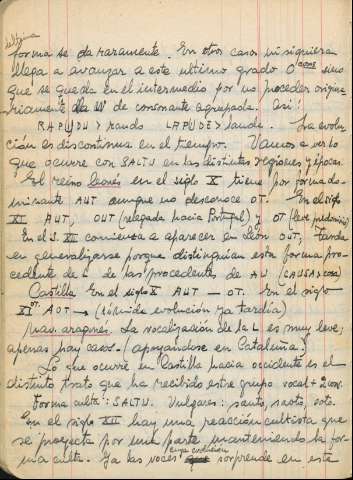 última
forma se da raramente. En otros casos ni siquiera
llega a avanzar a este último grado O cons sino
que se queda en el intermedio por no proceder origina
riamente de de consonante agrupada. Así:
RAPIDU > raudo LAPIDE > laude. La evolu-
ción es discontinua en el tiempo. Vamos a ver lo
que ocurre con SALTU en las distintas regiones y épocas.
El reino leonés en el siglo X tiene por forma do-
minante AUT aunque no desconoce OT. En el siglo
XI AUT, OUT (relegada hacia Portugal) y OT (leve predominio)
En el S. XII comienza a aparecer en León OUT; tarda
en generalizarse porque distinguían esta forma pro-
cedente de L de las procedentes de AU (CAUSA > cosa)
Castilla En el siglo X AUT — OT. En el siglo
XI OT. AOT → (evolución ya tardía)
Nav. aragonés. La vocalización de la L es muy leve;
apenas hay casos. (apoyándose en Cataluña)
Lo que ocurre en Castilla hacia occidente es el
distinto trato que ha recibido este grupo vocal + L cons.
Forma culta: SALTU. Vulgares: sauto, saoto, soto.
En el siglo XII hay una reacción cultista que
se proyecta por una parte manteniendo la for-
ma culta. Ya las voces cuya evolución sorprende en este